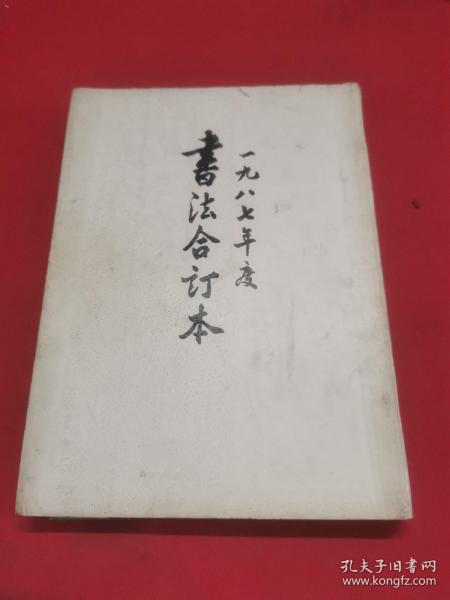 一九八七年度
書法合订本
孔夫子旧书网
www.kongfz.com